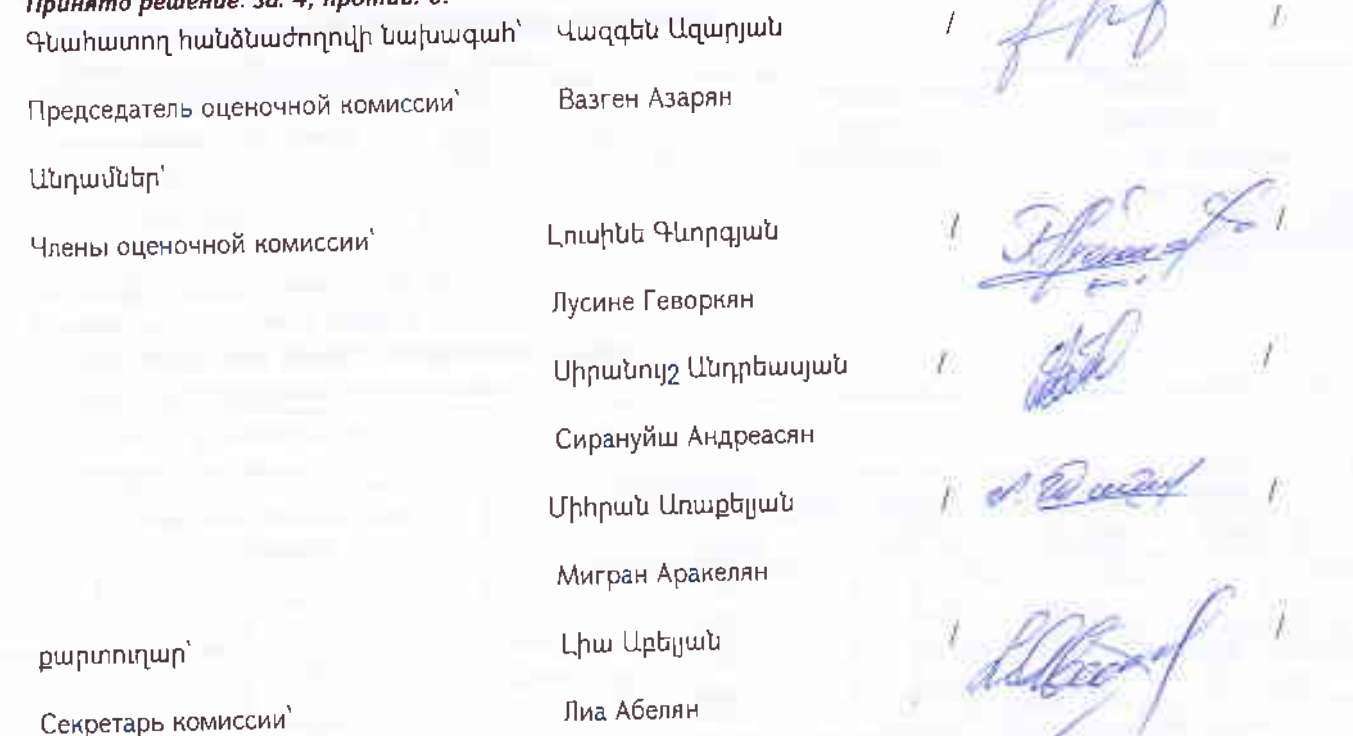 Принято решение: за. 4, против. 0.
Գնահատող հանձնաժողովի նախագահ՝ Վազգեն Ազարյան / /
Председатель оценочной комиссии՝ Вазген Азарян
Անդամներ՝
Члены оценочной комиссии՝ Լուսինե Գևորգյան / /
Лусине Геворкян
Սիրանույշ Անդրեասյան / /
Сирануйш Андреасян
Միհրան Առաքելյան / /
Мигран Аракелян
քարտուղար՝ Լիա Աբելյան / /
Секретарь комиссии՝ Лиа Абелян